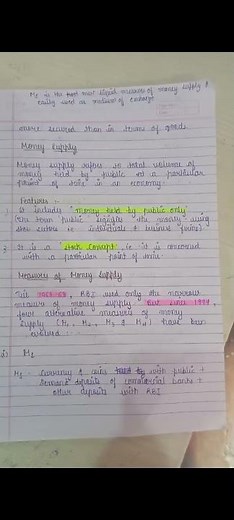 M1 is the most liquid measure of money supply &
easily used as medium of exchange
more secured than in terms of goods.
Money Supply
Money supply refers to total volume of
money held by public at a particular
point of time in an economy.
Features :-
1. It includes "Money held by public only"
The term public signifies the money using
sectors i.e. individuals & business firms.
2. It is a stock concept i.e. it is concerned
with a particular point of time.
Measures of Money Supply
Till 1967-68, RBI used only the narrow
measure of money supply. But since 1977,
four alternative measures of money
supply (M1, M2, M3 & M4) have been
evolved :-
i) M1
M1 - Currency & coins with public +
Demand deposits of commercial banks +
other deposits with RBI